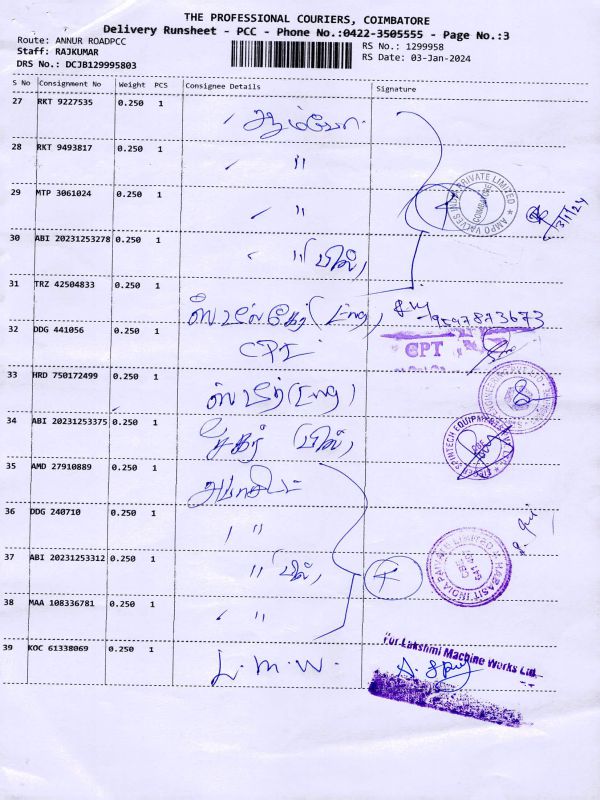 THE PROFESSIONAL COURIERS, COIMBATORE
Delivery Runsheet - PCC - Phone No.:0422-3505555 - Page No.:3
Route: ANNUR ROADPCC
RS No.: 1299958
Staff: RAJKUMAR
RS Date: 03-Jan-2024
DRS No.: DCJB129995803
S No Consignment No Weight PCS Consignee Details Signature
27 RKT 9227535 0.250 1
28 RKT 9493817 0.250 1 "
29 MTP 3061024 0.250 1 "
AMPO VALVES INDIA PRIVATE LIMITED COIMBATORE
3/1/24
30 ABI 20231253278 0.250 1 " (பில்)
31 TRZ 42504833 0.250 1 (Eng)
9597873673
32 DDG 441056 0.250 1
CPT
33 HRD 750172499 0.250 1 (Eng)
34 ABI 20231253375 0.250 1 சேகர் (பில்)
SPINTECH EQUIPMENTS
35 AMD 27910889 0.250 1
36 DDG 240710 0.250 1 "
37 ABI 20231253312 0.250 1 " (பில்)
HABASIT INDIA PRIVATE LIMITED
38 MAA 108336781 0.250 1 "
39 KOC 61338069 0.250 1 L.M.W.
For Lakshmi Machine Works Ltd.